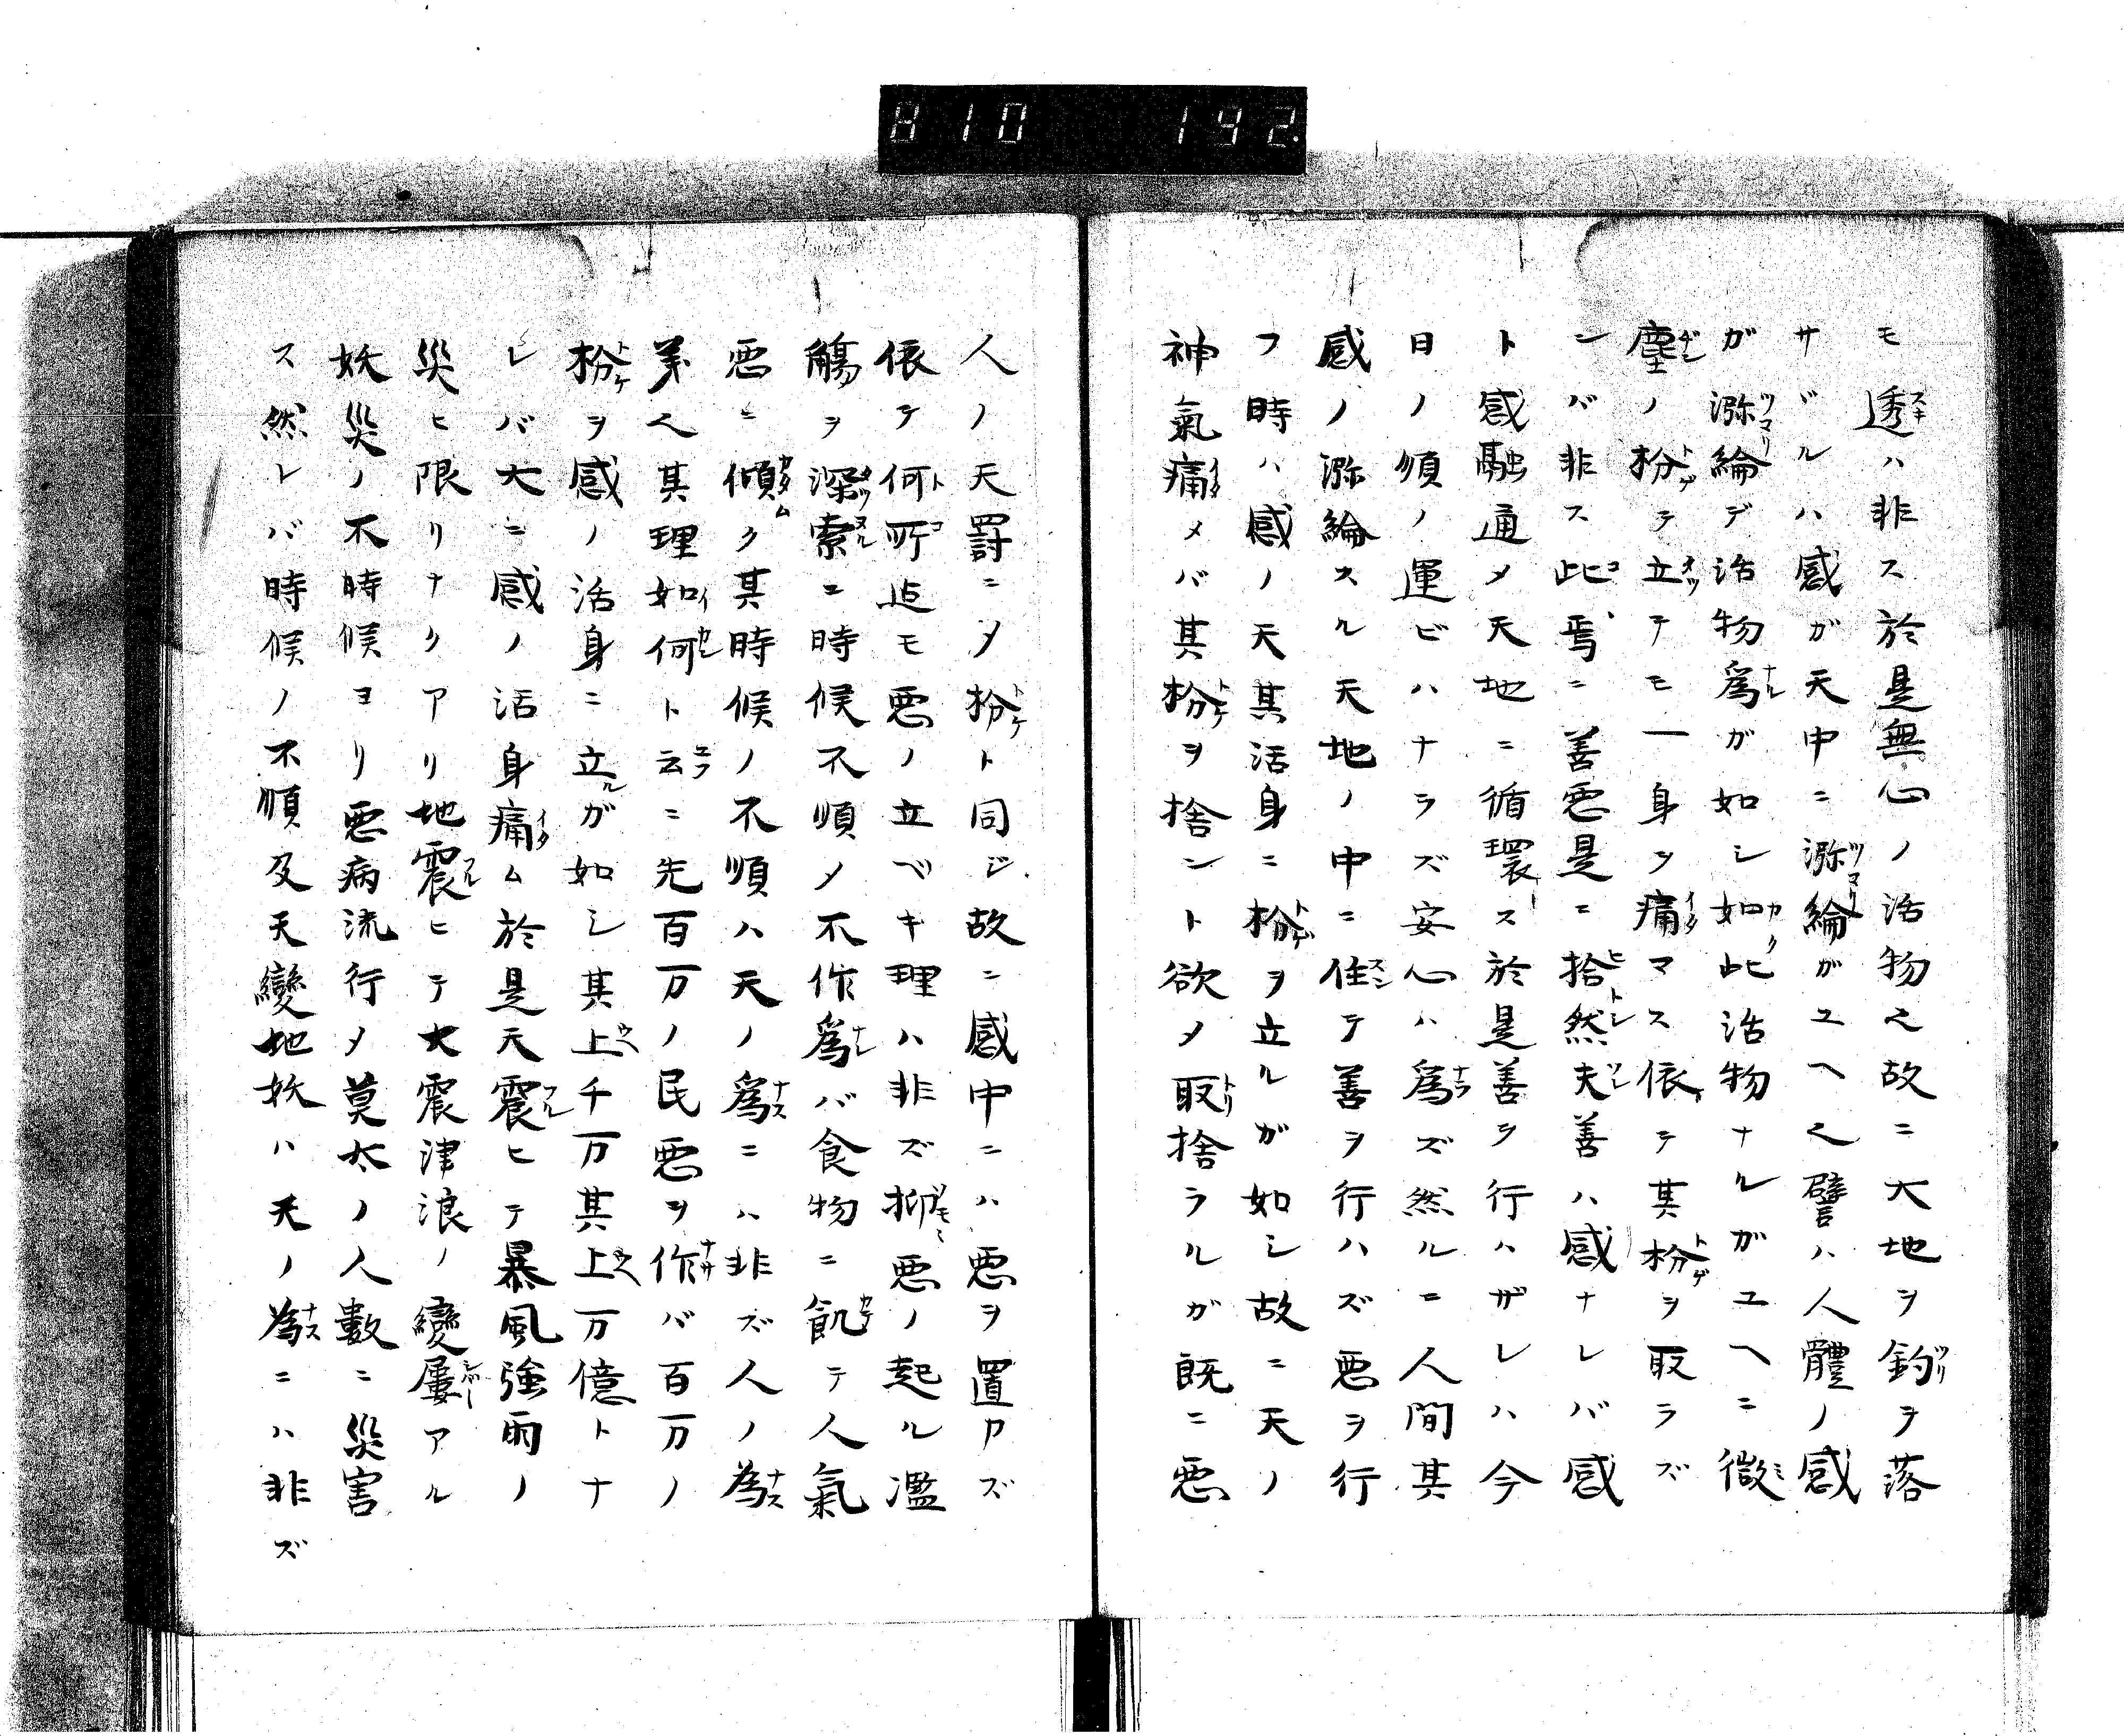 810 192.
モ透ハ非ス於是無心ノ活物之故ニ大地ヲ釣ヲ落
サヾルハ感ガ天中ニ濔綸ガユヘ之譬ハ人體ノ感
ガ濔綸デ活物爲ガ如シ如此活物ナルガユヘニ微
塵ノ枌テ立テモ一身ヲ痛マス依テ其枌ヲ取ラズ
ンバ非ス此焉ニ善悪是ニ拾然夫善ハ感ナレバ感
ト感融通メ天地ニ循環ス於是善ヲ行ハザレハ今
日ノ順ノ運ビハナラズ安心ハ爲ズ然ルニ人間其
感ノ濔綸スル天地ノ中ニ住テ善ヲ行ハズ悪ヲ行
フ時ハ感ノ天其活身ニ枌ヲ立ルガ如シ故ニ天ノ
神氣痛メバ其枌ヲ捨ント欲メ取捨ラルガ既ニ悪
人ノ天罸ニメ枌ト同ジ故ニ感中ニハ悪ヲ置カズ
依テ何所迄モ悪ノ立ベキ理ハ非ズ抑悪ノ起ル濫
觴ヲ深索ニ時候不順メ不作爲バ食物ニ飢テ人氣
悪ニ傾ク其時候ノ不順ハ天ノ爲ニハ非ズ人ノ為
業之其理如何ト云ニ先百万ノ民悪ヲ作バ百万ノ
枌ヲ感ノ活身ニ立ガ如シ其上千万其上万億トナ
レバ大ニ感ノ活身痛ム於是天震ヒテ暴風強雨ノ
災ヒ限リナクアリ地震ヒテ大震津浪ノ變屢アル
妖災ノ不時候ヨリ悪病流行メ莫太ノ人數ニ災害
ス然レバ時候ノ不順及天變地妖ハ天ノ為ニハ非ズ